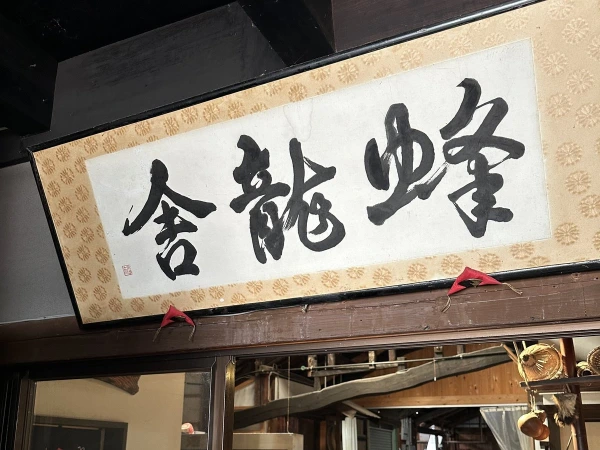 蜂龍舎